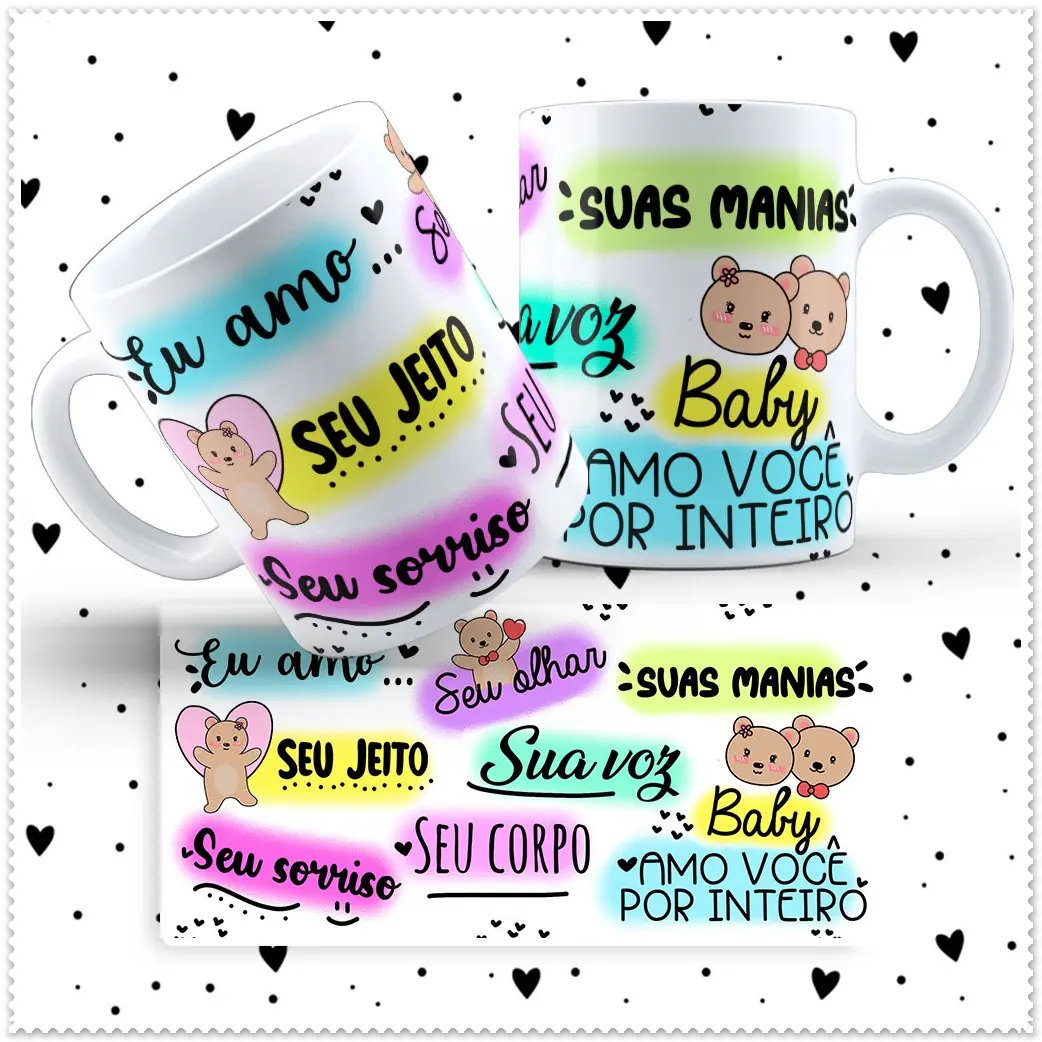 Eu amo...
Se
SEU JEITO
SEU
Seu sorriso
ar
SUAS MANIAS
a voz
Baby
AMO VOCÊ
POR INTEIRO
Eu amo...
Seu olhar
SUAS MANIAS
SEU JEITO
Sua voz
Baby
Seu sorriso
SEU CORPO
AMO VOCÊ
POR INTEIRO